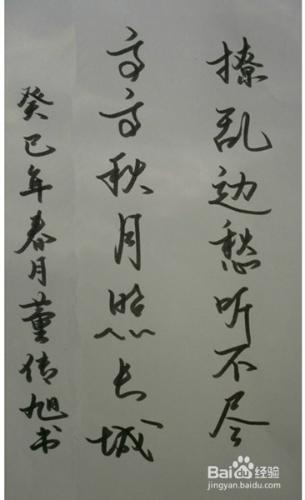 撩乱边愁听不尽
高高秋月照长城
癸巳年春月董传旭书
Baidu百度经验
jingyan.baidu.com